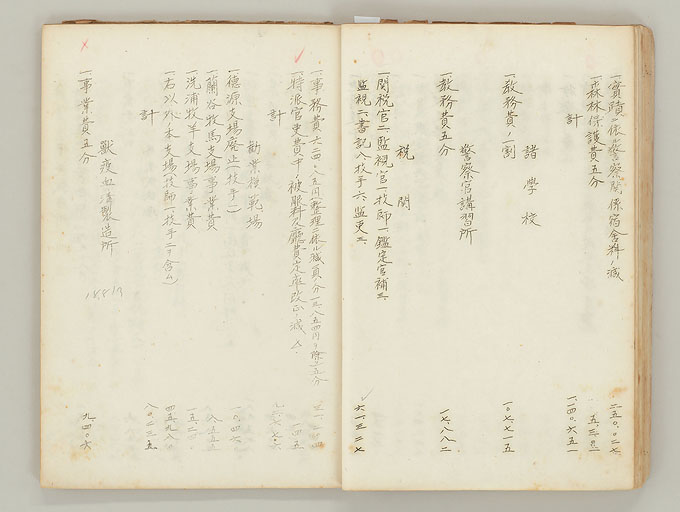 一實蹟ニ依ル警察関係宿舎料ノ減 二五〇.〇二七
一森林保護費五分 五.三〇二
計 一.一四〇.六五一
諸學校
一敎務費ノ一割 一〇七七一五
警察官講習所
一敎務費五分 一七.八八二
税関
一関税官二監視官一技師一鑑定官補三
監視二書記八技手六監吏三 六一三二七
一事務費六二四.八五円(整理ニ依ル減員分一三八五四円ヲ除ク)五分
一特派官吏費中被服料及廳費定率改正ノ減
計
勧業模範場
一德源支場廃止(技手一) 一〇.四六
一蘭谷牧馬支場事業費 八五五五
一洗浦牧羊支場事業費 一五.二四
一右以外本支場技師一(技手二ヲ含ム) 四五九八〇
計 八〇二三五
獸疫血清製造所
一事業費五分 九四〇六